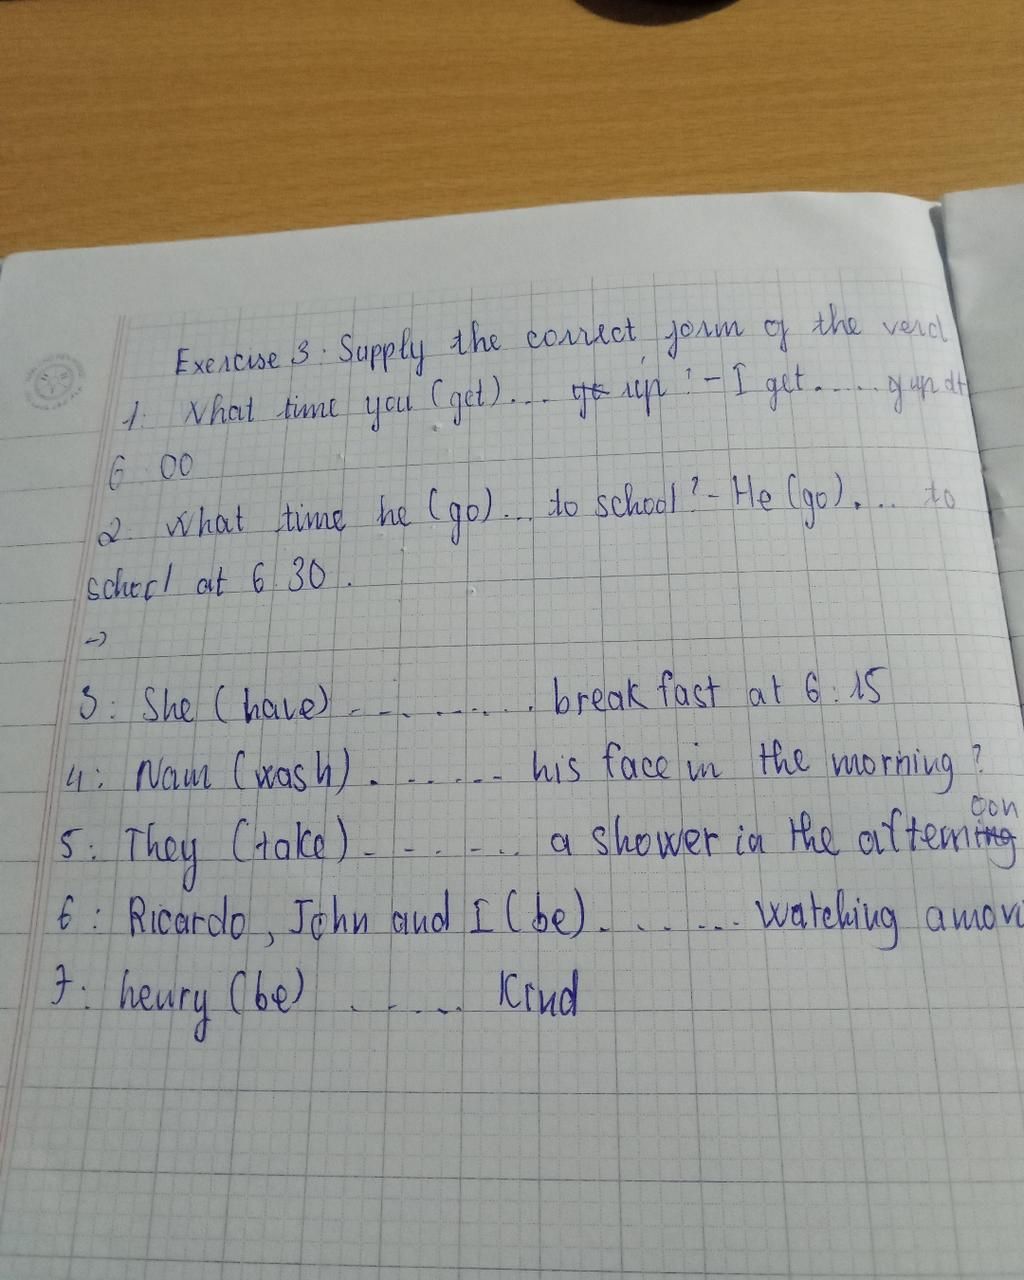 Exercise 3: Supply the correct form of the verd
1. What time you (get).... up? - I get..... up at
6 00
2. What time he (go)... to school? - He (go).... to
school at 6 30.
->
3: She (have) ......... breakfast at 6:15
4: Nam (wash)....... his face in the morning?
5: They (take)....... a shower in the afternoon
6: Ricardo, John and I (be)....... watching a movi
7: henry (be) ...... Kind